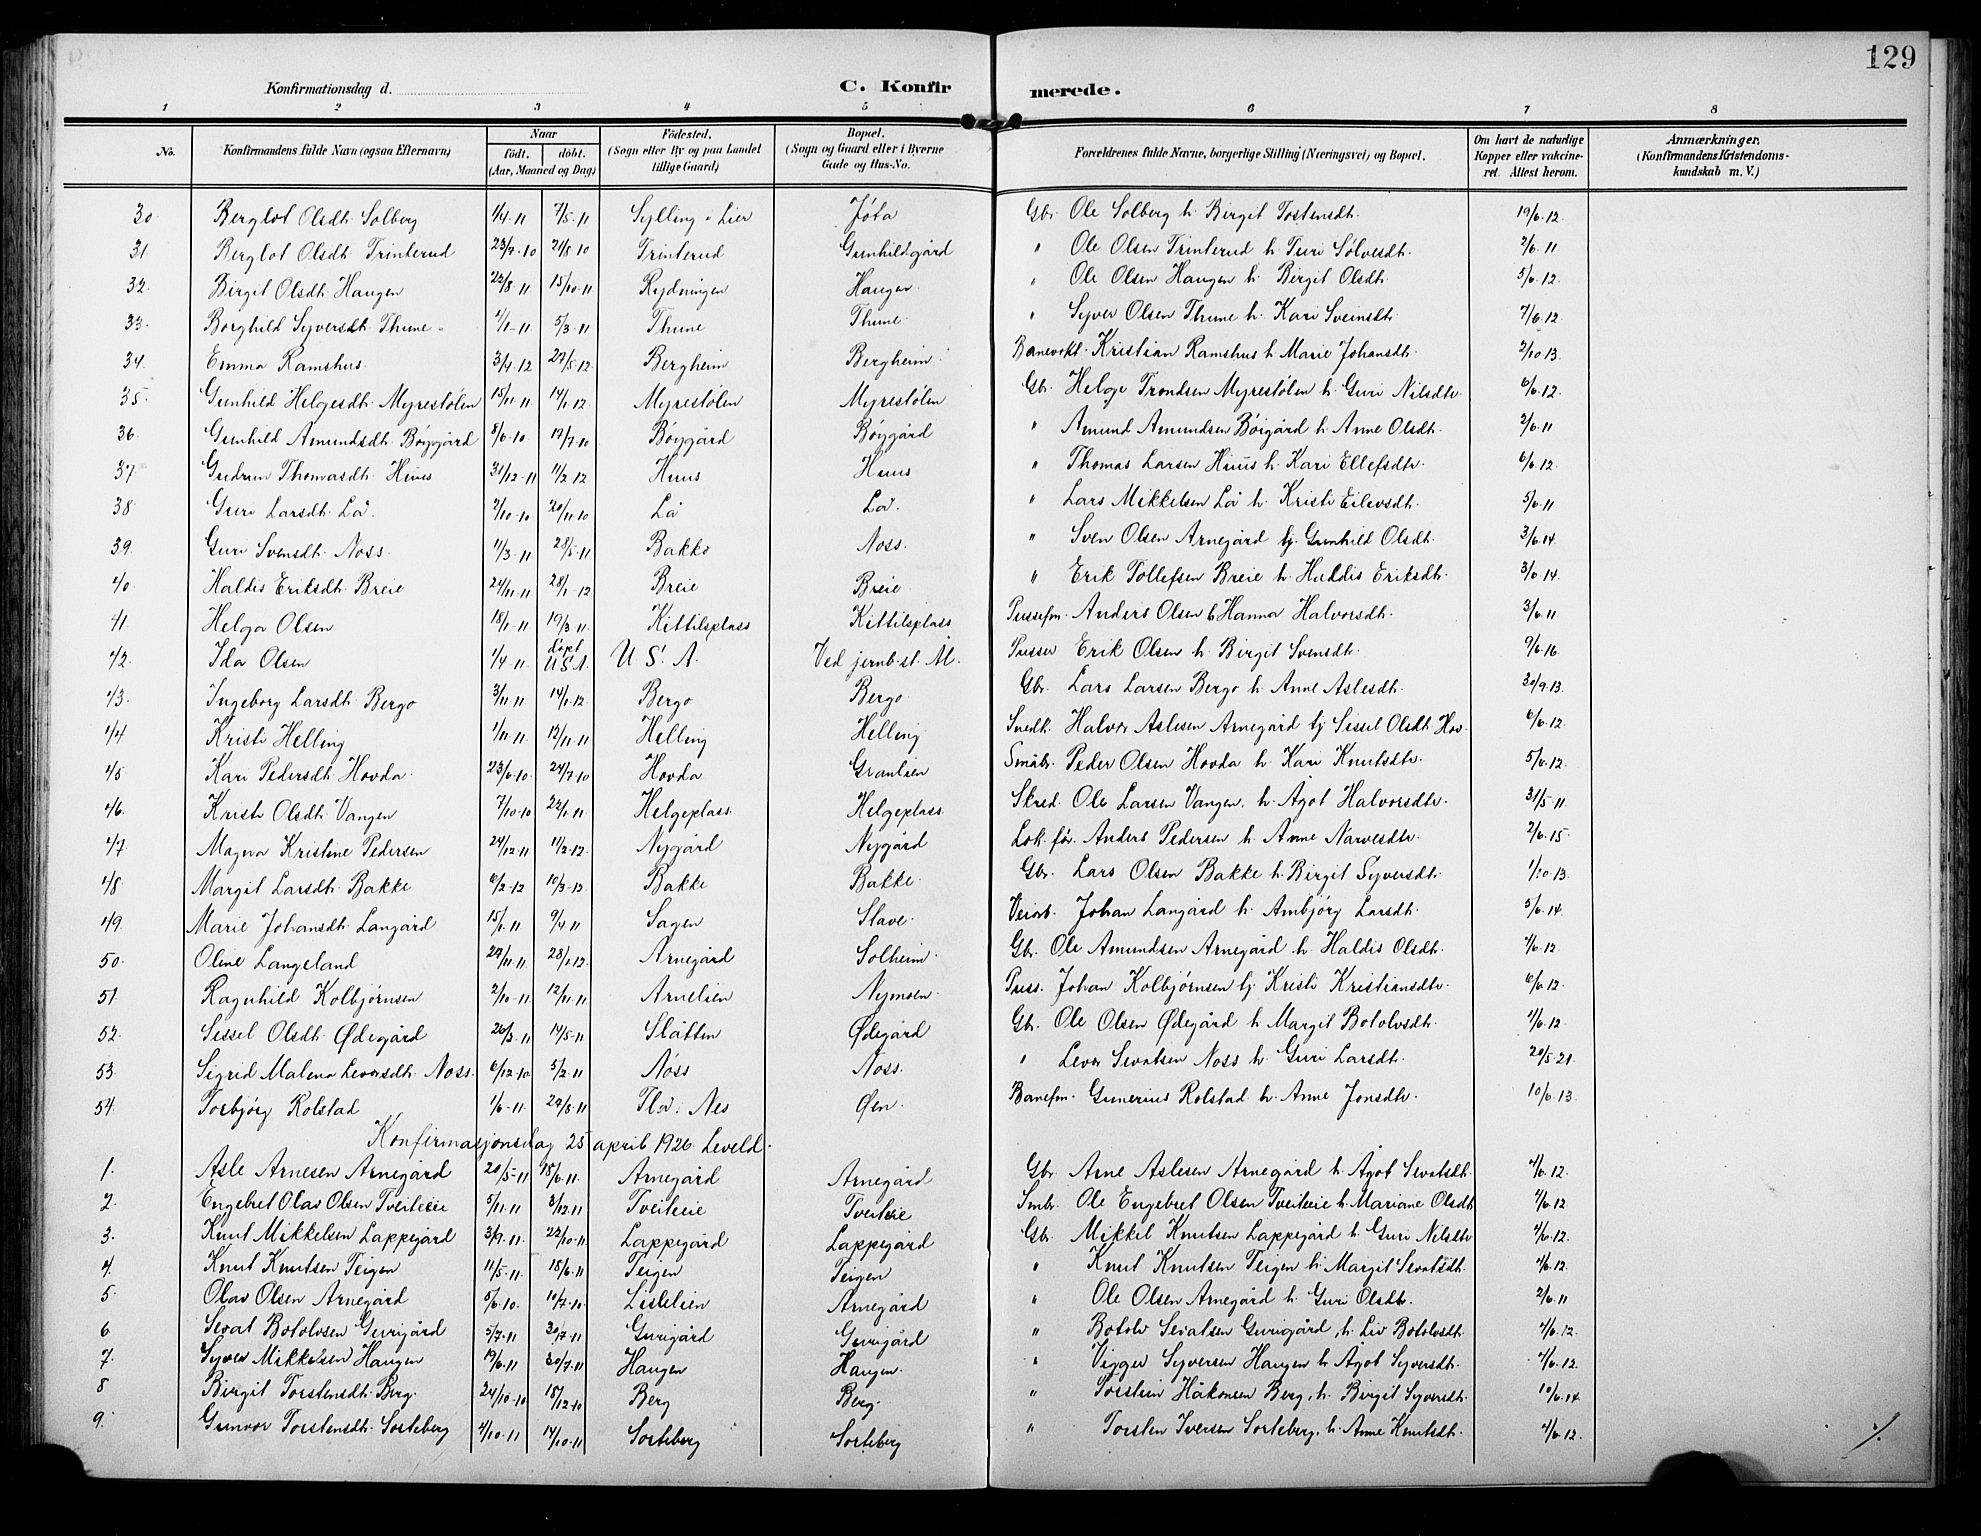 129
Konfirmationsdag d.
C. Konfirmerede.
1 2 3 4 5 6 7 8
No. Konfirmandens fulde Navn (ogsaa Efternavn) Naar födt. döbt. (Aar, Maaned og Dag) Födested. (Sogn eller By og paa Landet tillige Gaard) Bopæl. (Sogn og Gaard eller i Byerne Gade og Hus-No. Forældrenes fulde Navne, borgerlige Stilling (Næringsvei) og Bopæl. Om havt de naturlige Kopper eller vakcineret. Attest herom. Anmærkninger. (Konfirmandens Kristendomskundskab m. V.)
30. Berglot Olsdt. Solberg 1/4-11 7/5-11 Sylling i Lier Jota Gbr. Ole Solberg h. Birgit Tostensdt. 19/6.12.
31. Berglot Olsdt. Trinterud 23/7-10 21/8-10 Trinterud Gunhildgård " Ole Olsen Trinterud h. Turi Sølvesdt. 2/6.11.
32. Birgit Olsdt. Haugen 22/8.11 15/10-11 Rydningen Haugen " Ole Olsen Haugen h. Birgit Olsdt. 5/6.12.
33. Borghild Syversdt. Thune 5/3.11 Thune Thune " Syver Olsen Thune h. Kari Sveinsdt. 7/6.12.
34. Emma Ramshus. 3/4.12 27/5.12 Bergheim Bergheim Banevokt. Kristian Ramshus h. Marie Johansdt. 2/10.13.
35. Gunhild Helgesdt. Myrestølen 15/11.11 14/1.12 Myrestølen Myrestølen Gb. Helge Trondsen Myrestølen h. Guri Nilsdtr. 6/6.12.
36 Gunhild Amundsdt. Bøygård 8/6.10 17/7.10 Bøygård Bøygård " Amund Amundsen Bøigård h. Anne Olsdt. 2/6.11
37 Gudrun Thomasdt. Huus 31/12-11 11/2.12. Huus Huus " Thomas Larsen Huus h. Kari Ellefsdtr. 6/6.12.
38 Guri Larsdt. Lå. 2/10-10 20/11.10 Lå Lå. " Lars Mikkelsen Lå h. Kristi Eilevsdt. 5/6.11
39. Guri Svensdt. Noss. 11/3-11 28/5.11 Bakko Noss. " Sven Olsen Arnegård bj. Gunhild Olsdt. 3/6.14.
40 Haldis Eriksdt. Breie 24/11.11. 28/1.12 Breie Breie " Erik Tollefsen Breie h. Haldis Eriksdt. 3/6.14.
41. Helga Olsen 18/1-11 19/3.11. Kittilsplass Kittilsplass Pussefm. Anders Olsen h Hanna Halvorsdt. 3/6.11
42 Ida Olsen 1/4.11. døpt U.S.A. U.S.A. Ved jernb.st. Ål. Pusser Erik Olsen h. Birgit Svensdt. 9/6.16
43. Ingeborg Larsdt. Bergo 3/11 11 14/1.12. Bergo Bergo Gb. Lars Larsen Bergo h. Anne Aslesdt. 30/9.13.
44 Kristi Helling 1/11.11. 12/11.11 Helling Helling Snedk. Halvor Aslesen Arnegård bj Sissel Olsdt. Hov. 6/6.12.
45 Kari Pedersdt. Hovda. 23/6.10. 24/7.10 Hovda Granlien Småbr. Peder Olsen Hovda h. Kari Knutsdtr. 5/6.12.
46. Kristi Olsdt. Vangen 7/10-10 22/1.11. Helgeplass. Helgeplass. Skred. Ole Larsen Vangen. h. Ågot Halvorsdtr. 31/5.11.
47. Magna Kristine Pedersen 24/12.11 11/2.12. Nygård Nygård Lok.før. Anders Pedersen h. Anne Narvesdtr. 2/6.15.
48 Margit Larsdt. Bakke 6/2-12 10/3-12. Bakke Bakke Gbr. Lars Olsen Bakke h. Birgit Syversdt. 1/10.13.
49 Marie Johansdt. Langård 15/1.11 9/4 11 Sagen Slave. Veiarb. Johan Langård h. Ambjørg Larsdt. 5/6.14.
50. Oline Langeland 27/11.11. 28/1.12. Arnegård Solheim Gb. Ole Amundsen Arnegård h. Haldis Olsdt. 4/6.12.
51. Ragnhild Kolbjørnsen 2/10-11 12/11.11. Arnelien Nymoen. Puss. Johan Kolbjørnsen bj Kristi Kristiansdtr. 6/6.12.
52. Sissel Olsdt. Ødegård 26/3.11 14/5-11 Slåtten Ødegård Gb. Ole Olsen Ødegård h. Margit Botolvsdt. 4/6.12
53. Sigrid Malena Leversdt. Noss. 6/12.10 5/2-11 Nøss Noss. " Lever Sevatsen Noss h. Guri Larsdt. 20/5-21.
54. Torbjørg Rolstad 1/6-11 27/8.11 Flå. Nes Øen. Banefm. Gunerius Rolstad h. Anne Jonsdtr. 10/6.13.
Konfirmasjonsdag 25 april 1926. Leveld.
1. Asle Arnesen Arnegård 20/5-11 18/6.11. Arnegård Arnegård Gbr. Arne Aslesen Arnegård h. Ågot Sevatsdt. 4/6.12.
2. Engebret Olav Olsen Tveiteie 5/11.11 3/12.11 Tveiteie Tveiteie Smbr. Ole Engebret Olsen Tveiteie h. Mariane Olsdt 4/6.12
3. Knut Mikkelsen Lappegård 3/9.11. 22/10.11. Lappegård Lappegård Gbr. Mikkel Knutsen Lappegård h. Guri Nilsdtr 4/6.12.
4. Knut Knutsen Teigen 11/5.11. 18/6.11 Teigen Teigen " Knut Knutsen Teigen h. Margit Sevatsdt. 4/6.12.
5. Olav Olsen Arnegård 5/6.10. 10/7.10. Lislelien Arnegård " Ole Olsen Arnegård h. Guri Olsdtr. 2/6.11
6. Sevat Botolvsen Gurigård 5/7.11 30/7.11 Gurigård Gurigård " Botolv Sevatsen Gurigård, h. Liv Botolvsdt. 4/6.12.
7. Syver Mikkelsen Haugen 19/6.11 30/7.11 Haugen Haugen. " Vigger Syversen Haugen h. Ågot Syversdt. 4/6.12.
8 Birgit Torstensdt. Berg. 24/10.10 18/12.10 Berg Berg. " Torstein Håkonsen Berg, h. Birgit Syversdt. 10/6.14
9. Gunvor Torstensdt. Sorteberg 4/10.11 14/10.11 Sorteberg Sorteberg " Torsten Iversen Sorteberg, h. Anne Knutsdt. 4/6.12.